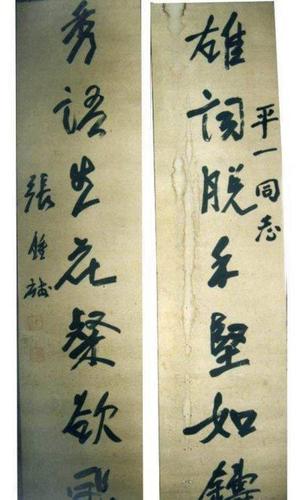 平一同志
雄詞脫手堅如
秀語生花粲欲
張